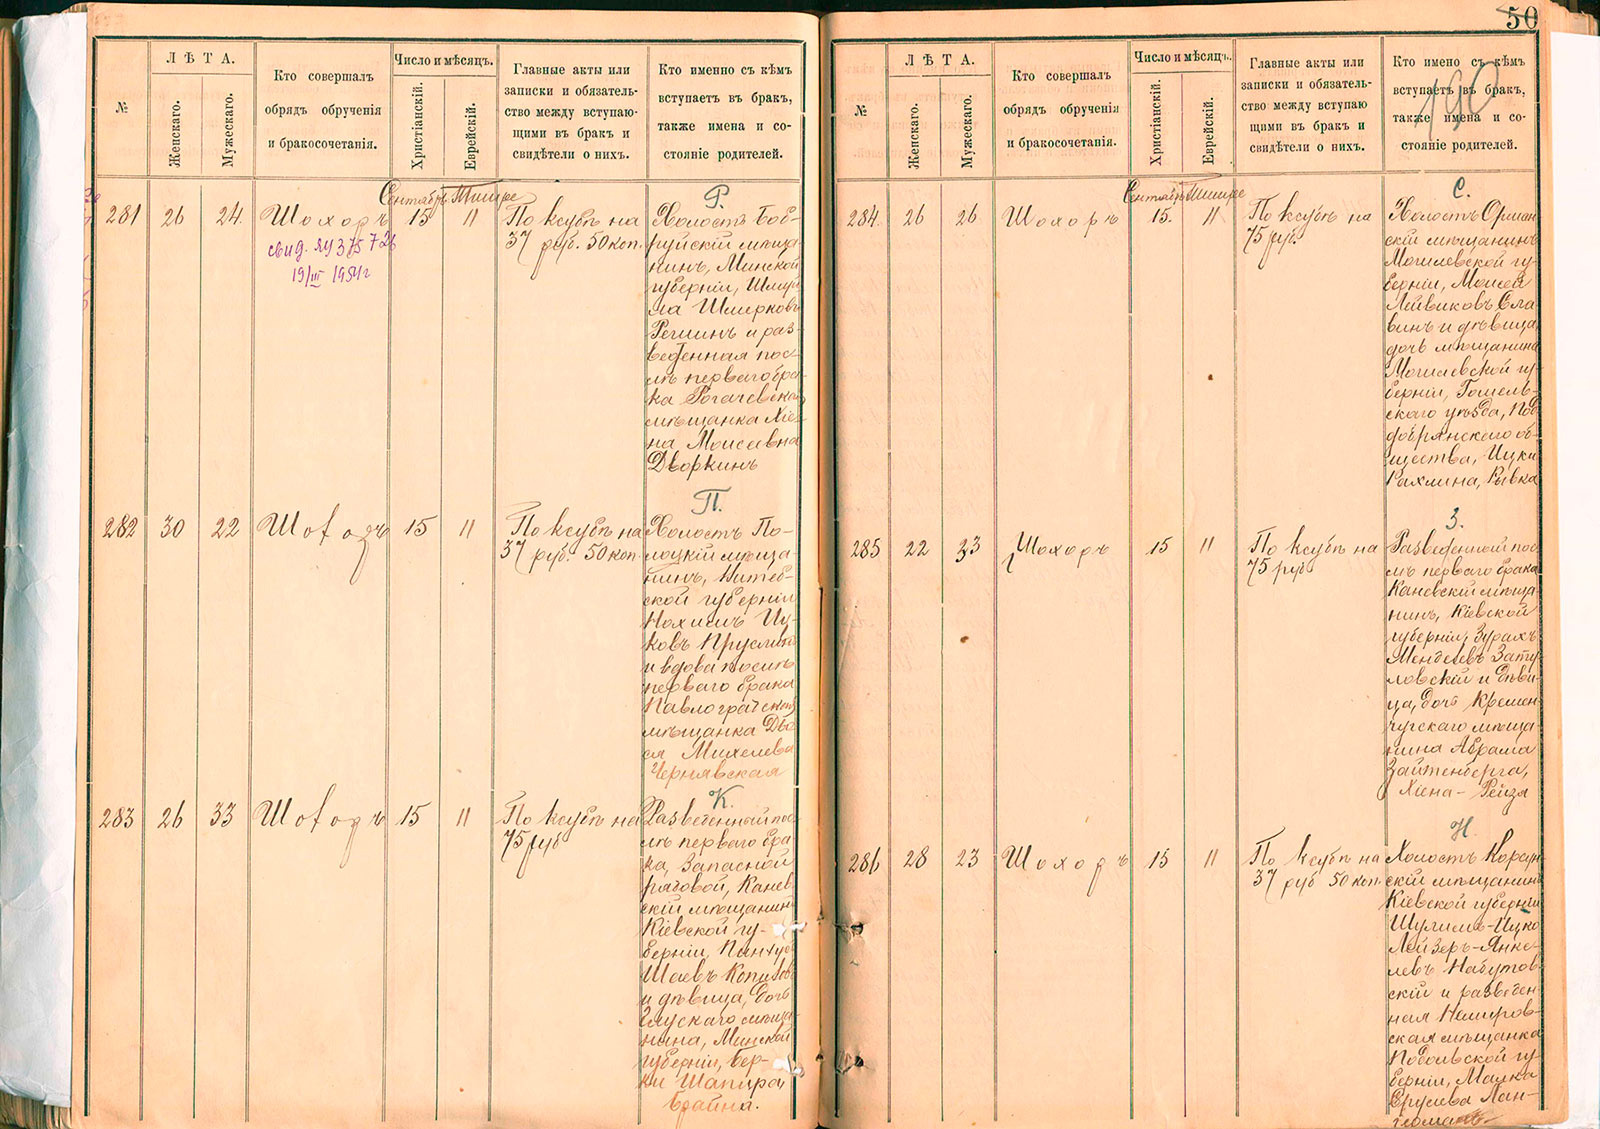 50
190
№
ЛѢТА.
Женскаго.
Мужескаго.
Кто совершалъ
обрядъ обрученія
и бракосочетанія.
Число и мѣсяцъ.
Христіанскій.
Еврейскій.
Главные акты или
записки и обязатель-
ство между вступаю-
щими въ бракъ и
свидѣтели о нихъ.
Кто именно съ кѣмъ
вступаетъ въ бракъ,
также имена и со-
стояніе родителей.
Сентябрь Тишре
281 26 24. Шохоръ 15 11
свид. ЯУ 375726
19/III 1954г
По ксубѣ на
37 руб. 50 коп.
Р.
Холостъ Боб-
руйскій мѣща-
нинъ, Минской
губерніи, Шму-
ла Шмерковъ
Регминъ и раз-
веденная пос-
лѣ перваго бра-
ка Рогачевская
мѣщанка Хіе-
на Моисеевна
Дворкинъ
282 30 22 Шохоръ 15 11
По ксубѣ на
37 руб. 50 коп.
П.
Холостъ По-
лоцкій мѣща-
нинъ, Витеб-
ской губерніи
Нохимъ Иц-
ковъ Пруслинъ
и вдова послѣ
перваго брака
Павлоградская
мѣщанка Дво-
ся Михелева
Чернявская
283 26 33 Шохоръ 15 11
По ксубѣ на
75 руб
К.
Разведенный пос-
лѣ перваго бра-
ка, Запасной
рядовой, Канев-
скій мѣщанинъ
Кіевской гу-
берніи,
Шаевъ
и дѣвица, дочь
Глускаго мѣща-
нина, Минской
губерніи, Бер-
ки Шапиро,
Брайна.
№
ЛѢТА.
Женскаго.
Мужескаго.
Кто совершалъ
обрядъ обрученія
и бракосочетанія.
Число и мѣсяцъ.
Христіанскій.
Еврейскій.
Главные акты или
записки и обязатель-
ство между вступаю
щими въ бракъ и
свидѣтели о нихъ.
Кто имено съ кѣмъ
вступаетъ въ бракъ,
также имена и со-
стояніе родителей.
Сентябрь Тишре
284. 26 26 Шохоръ 15. 11
По ксубѣ на
75 руб.
С.
Холостъ Орман
скій мѣщанинъ
Могилевской гу-
берніи, Мойсей
Лейвиковъ Сла-
винъ и дѣвица,
дочь мѣщанина
Могилевской гу-
берніи, Гомель-
скаго уѣзда, Поd
добрянскаго об-
щества, Ицки
Рахлина, Рывка
285 22 33 Шохоръ 15 11
По ксубѣ на
75 руб
З.
Разведенный пос-
лѣ перваго брака
Каневскій мѣща-
нинъ, Кіевской
губерніи, Зурахъ
Менделевъ Зату-
ловскій и дѣви-
ца, дочь Кремен-
чугскаго мѣща-
нина Абрама
Зайтенберга,
Хіена-Рейзя
286 28 23 Шохоръ 15 11
По ксубѣ на
37 руб 50 коп.
Н.
Холостъ Корсун-
скій мѣщанинъ
Кіевской губерніи
Шулимъ-Ицко
Лейзеръ-Янке-
левъ Набутов-
скій и разведен-
ная Немиров-
ская мѣщанка
Подольской гу-
берніи, Малка
Срулева Лан-